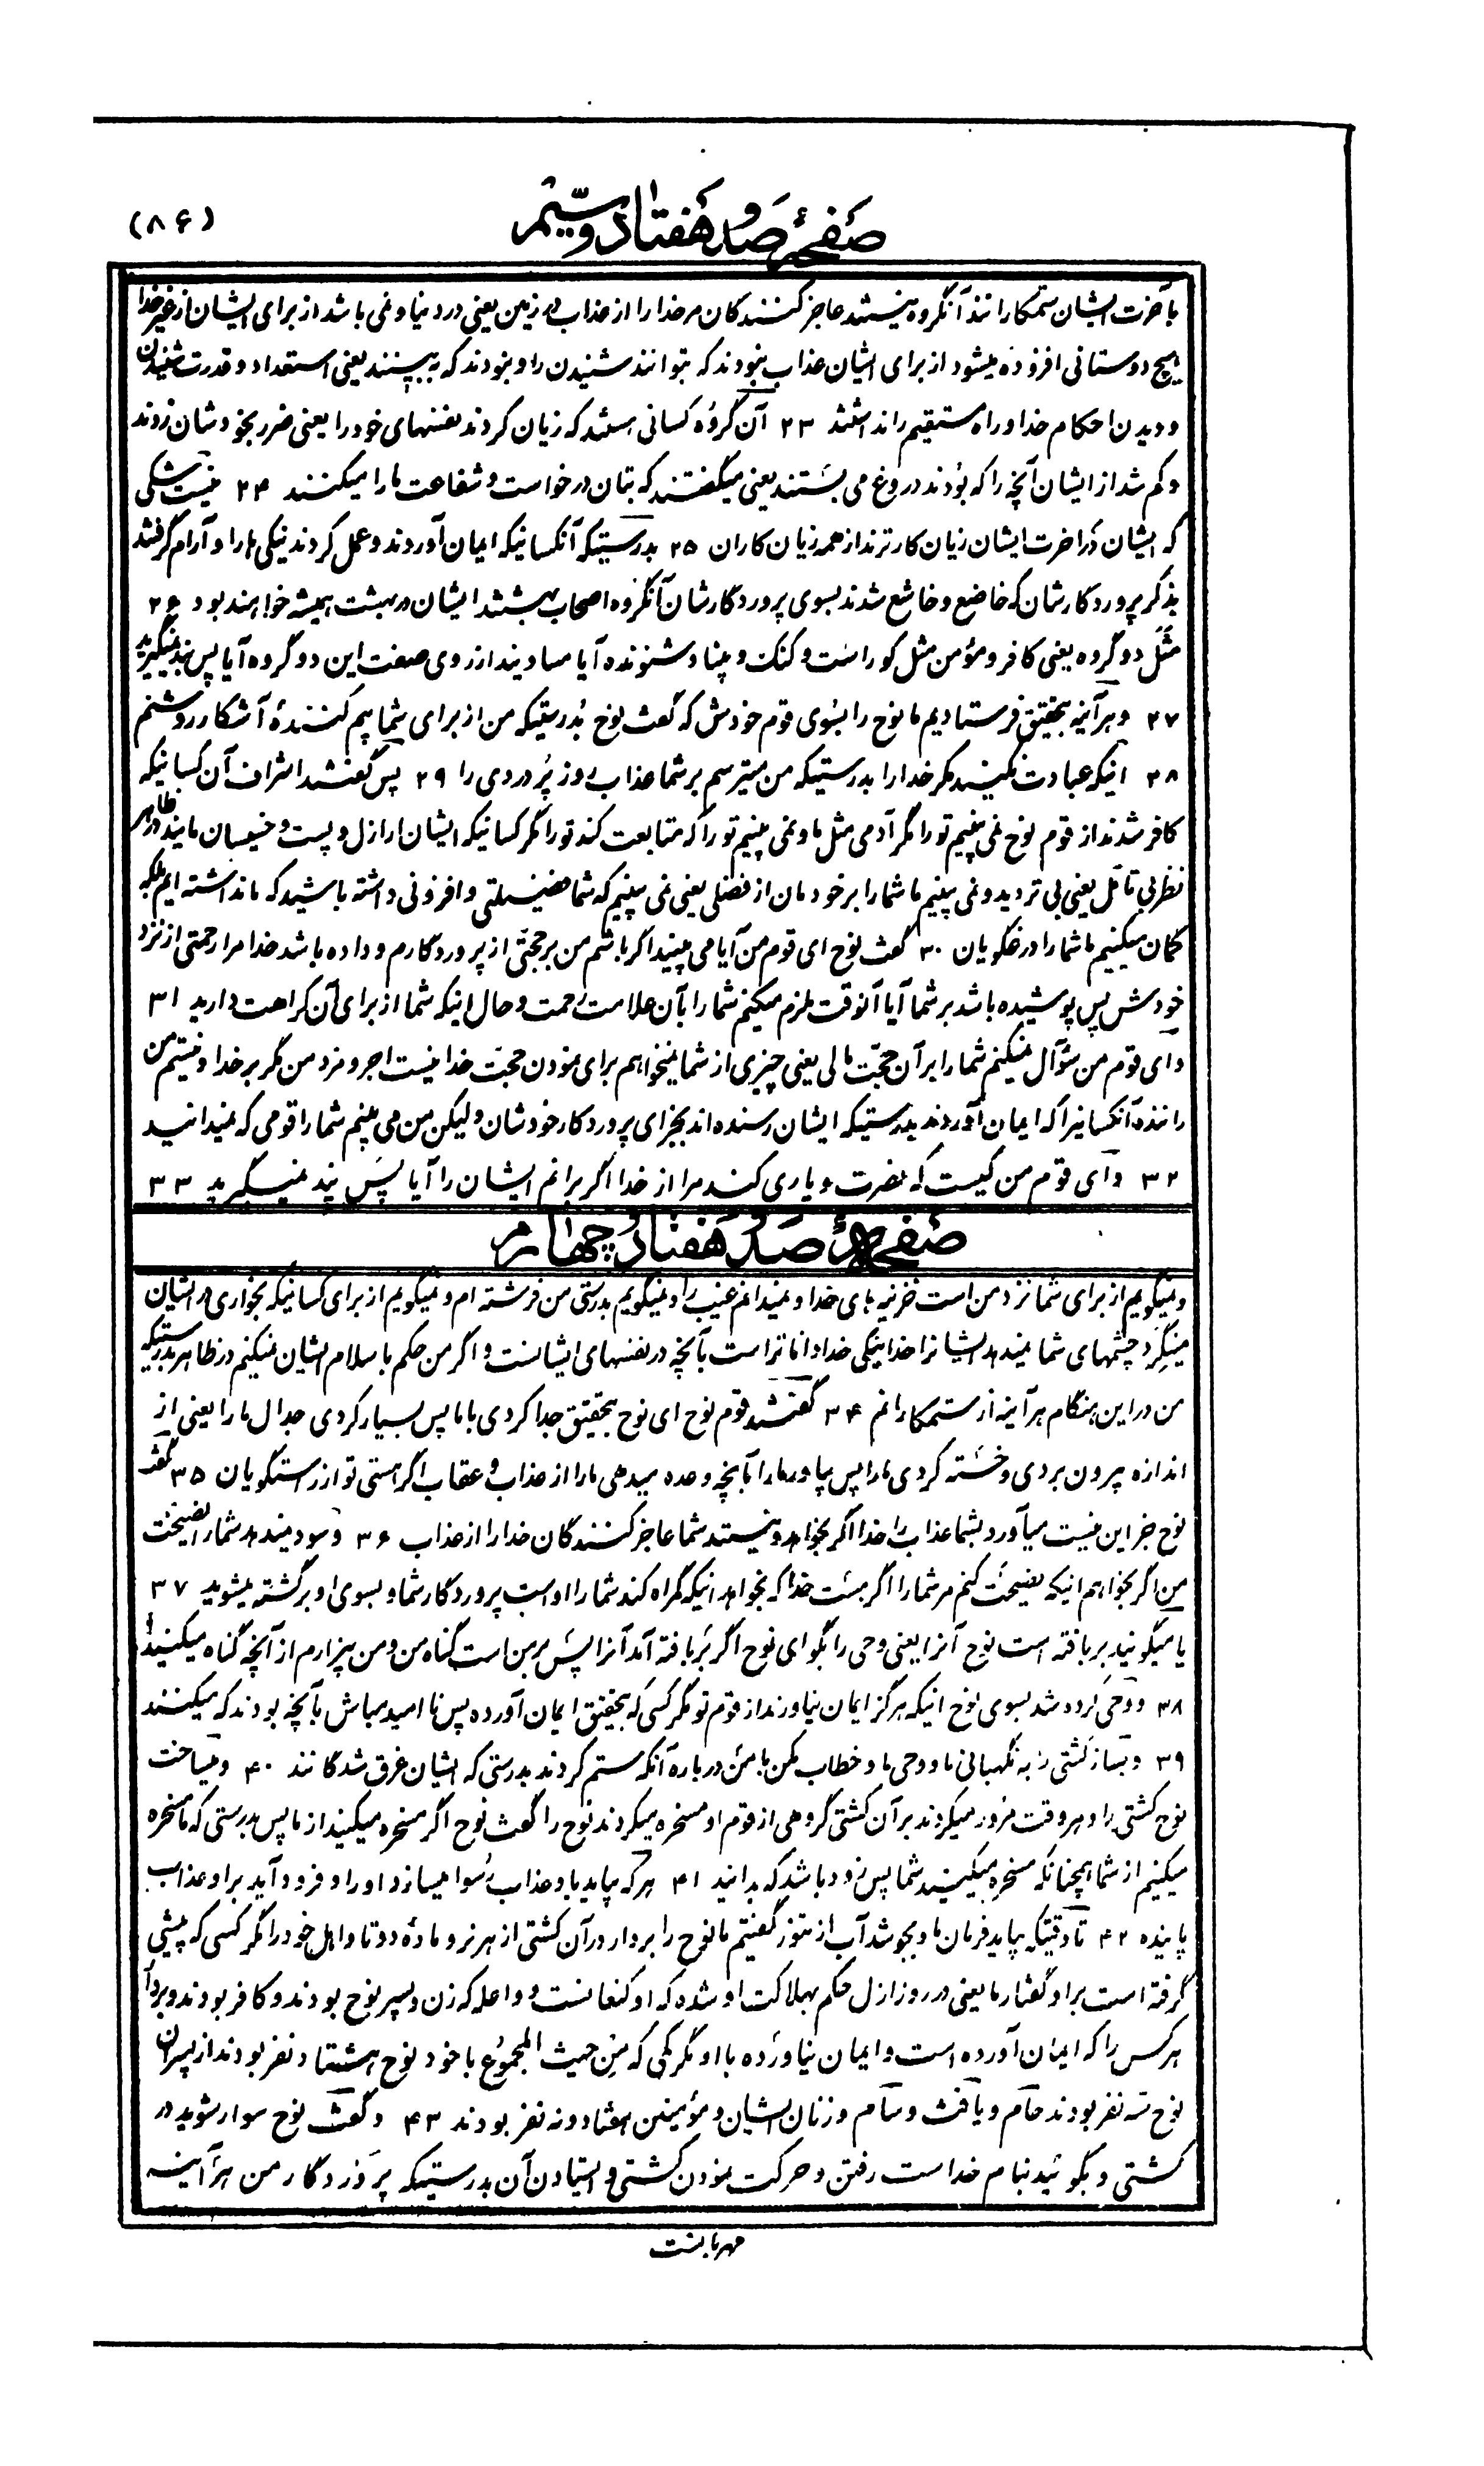 صفحهٔ صد و هفتاد و سیّم
(۸۶)
بآخرت ایشان ستمکارانند آنگروه نیستند عاجز کنندگان مر خدا را از عذاب در زمین یعنی در دنیا و نمی باشد از برای ایشان از غیر خدا
هیچ دوستانی افزوده میشود از برای ایشان عذاب نبودند که بتوانند شنیدن را و نبودند که به بینند یعنی استعداد و قدرت شنیدن
و دیدن احکام خدا و راه مستقیم را نداشتند ۲۳ آن گروه کسانی هستند که زیان کردند نفسهای خود را یعنی ضرر بخودشان زدند
و کم شد از ایشان آنچه را که بودند دروغ می بستند یعنی میگفتند که بتان درخواست و شفاعت ما را میکنند ۲۴ نیست شکی
که ایشان در آخرت ایشان زیان کارترند از همه زیان کاران ۲۵ بدرستیکه آنکسانیکه ایمان آوردند و عمل کردند نیکی ها را و آرام گرفتند
بذکر پروردگارشان که خاضع و خاشع شدند بسوی پروردگارشان آنگروه اصحاب بهشتند ایشان در بهشت همیشه خواهند بود ۲۶
مثل دو گروه یعنی کافر و مؤمن مثل کور است و کنک و بینا و شنونده آیا مساویند از روی صفت این دو گروه آیا پس پند نمیگیرید
۲۷ و هر آینه بتحقیق فرستادیم ما نوح را بسوی قوم خودش که گفت نوح بدرستیکه من از برای شما بیم کنندهٔ آشکار روشنم
۲۸ اینکه عبادت نکنید مگر خدا را بدرستیکه من میترسم بر شما عذاب روز پر دردی را ۲۹ پس گفتند اشراف آن کسانیکه
کافر شدند از قوم نوح نمی بینیم تو را مگر آدمی مثل ما و نمی بینیم تو را که متابعت کند تو را مگر کسانیکه ایشان ارازل و پست و خسیسان مایند در ظاهر
نظر بی تأمّل یعنی بی تردید و نمی بینیم ما شما را بر خودمان از فضلی یعنی نمی بینیم که شما فضیلتی و افزونی داشته باشید که ما نداشته ایم بلکه
گمان میکنیم ما شما را دروغگویان ۳۰ گفت نوح ای قوم من آیا می بینید اگر باشم من بر حجّتی از پروردگارم و داده باشد خدا مرا رحمتی از نزد
خودش پس پوشیده باشد بر شما آیا آنوقت ملزم میکنم شما را بآن علامت رحمت و حال اینکه شما از برای آن کراهت دارید ۳۱
و ای قوم من سؤال نمیکنم شما را بر آن حجّت مالی یعنی چیزی از شما نمیخواهم برای نمودن حجّت خدا نیست اجر و مزد من مگر بر خدا و نیستم من
راننده آنکسانیرا که ایمان آوردند بدرستیکه ایشان رسنده اند بجزای پروردگار خودشان و لیکن من می بینم شما را قومی که نمیدانید
۳۲ و ای قوم من کیست که نصرت و یاری کند مرا از خدا اگر برانم ایشان را آیا پس پند نمیگیرید ۳۳
صفحهٔ صد و هفتاد و چهارم
و نمیگویم از برای شما نزد من است خزینه های خدا و نمیدانم غیب را و نمیگویم بدرستی من فرشته ام و نمیگویم از برای کسانیکه بخواری در ایشان
مینگرد چشمهای شما نمیدهد ایشانرا خدا نیکی خدا داناتر است بآنچه در نفسهای ایشانست و اگر من حکم باسلام ایشان نمیکنم در ظاهر بدرستیکه
من در این هنگام هر آینه از ستمکارانم ۳۴ گفتند قوم نوح ای نوح بتحقیق جدا کردی با ما پس بسیار کردی جدال ما را یعنی از
اندازه بیرون بردی و خسته کردی ما را پس بیاور ما را بآنچه وعده میدهی ما را از عذاب و عقاب اگر هستی تو از راستگویان ۳۵ گفت
نوح جز این نیست میآورد بشما عذاب را خدا اگر بخواهد و نیستند شما عاجز کنندگان خدا را از عذاب ۳۶ و سود نمیدهد شما را نصیحت
من اگر بخواهم اینکه نصیحت کنم مر شما را اگر هست خدا که بخواهد اینکه گمراه کند شما را اوست پروردگار شما و بسوی او برگشته میشوید ۳۷
یا میگویند بر بافته است نوح آنرا یعنی وحی را بگو ای نوح اگر بر بافته آمد آنرا پس بر من است گناه من و من بیزارم از آنچه گناه میکنید
۳۸ و وحی کرده شد بسوی نوح اینکه هرگز ایمان نیاورند از قوم تو مگر کسی که بتحقیق ایمان آورده پس نا امید مباش بآنچه بودند که میکنند
۳۹ و بساز کشتی را به نگهبانی ما و وحی ما و خطاب مکن با من در باره آنکه ستم کردند بدرستی که ایشان غرق شدگانند ۴۰ و میساخت
نوح کشتی را و هر وقت مرور میکردند بر آن کشتی گروهی از قوم او مسخره میکردند نوح را گفت نوح اگر مسخره میکنید از ما پس بدرستی که ما مسخره
میکنیم از شما همچنانکه مسخره میکنید شما پس زود باشد که بدانید ۴۱ هر که بیاید باو عذاب رسوا میسازد او را و فرود آید بر او عذاب
پاینده ۴۲ تا وقتیکه بیاید فرمان ما و بجوشد آب از تنور گفتیم ما نوح را بردار در آن کشتی از هر نر و مادهٔ دو تا و اهل خود را مگر کسی که پیشی
گرفته است بر او گفتار ما یعنی در روز ازل حکم بهلاکت او شده که او کنعانست و واعله که زن و پسر نوح بودند و کافر بودند و بردار
هر کس را که ایمان آورده است و ایمان نیاورده با او مگر کمی که من حیث المجموع با خود نوح هشتاد نفر بودند از پسران
نوح سه نفر بودند حام و یافث و سام و زنان ایشان و مؤمنین هفتاد و نه نفر بودند ۴۳ و گفت نوح سوار شوید در
کشتی و بگوئید بنام خداست رفتن و حرکت نمودن کشتی و ایستادن آن بدرستیکه پروردگار من هر آینه
مهربانست